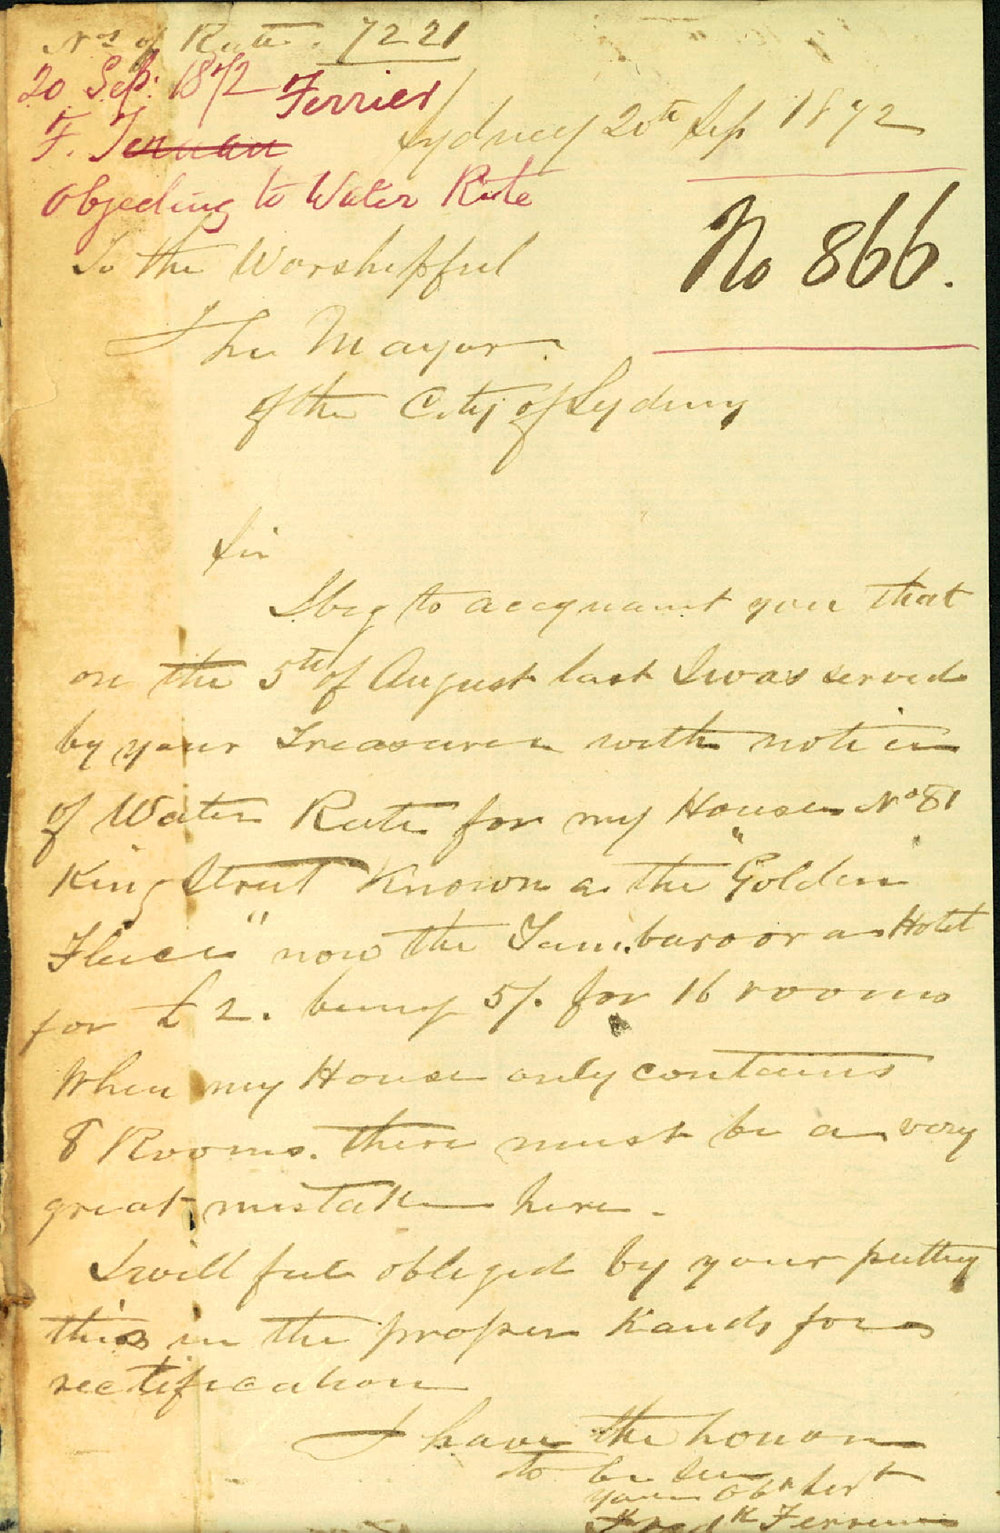 No. of Rate. 7221
20 Sep: 1872 Ferrier
Sydney 20th Sep 1872
F.
Objecting to Water Rate
No 866.
To the Worshipful
The Mayor
of the City of Sydney
Sir
I beg to accquaint you that
on the 5th of August last I was served
by your Treasurer with notice
of Water Rate for my House No 81
King Street Known as the "Golden
Fleece" now the Tambaroora Hotel
for £2. being 5/. for 16 rooms
When my House only contains
8 Rooms. there must be a very
great mistake here.
I will feel obliged by your putting
this in the proper hands for
rectification
I have the honor
to be Sir
your Obt Servt
Fredk Ferrier